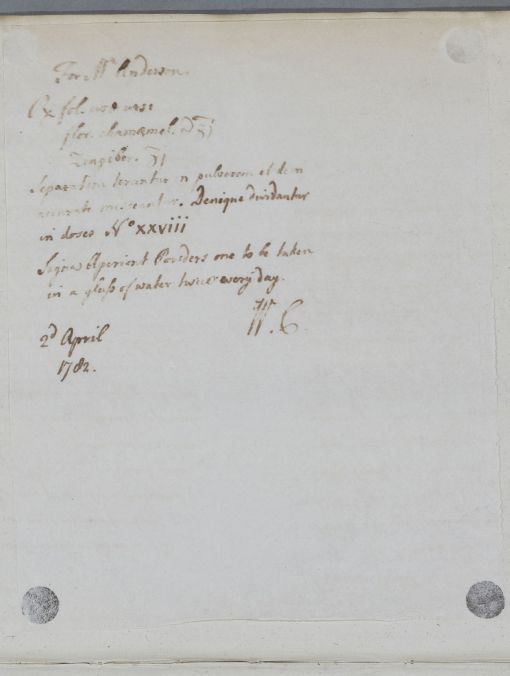 For Mr Anderson.
℞ fol. uvæ ursi
flor. chamæmel. āā ʒj
Zingiber. ʒj
Separatim terantur in pulverem et dein
misceantur. Denique dividantur
in doses No XXVIII
Signa Aperient Powders one to be taken
in a glass of water twice every day.
W. C.
2d April
1782.